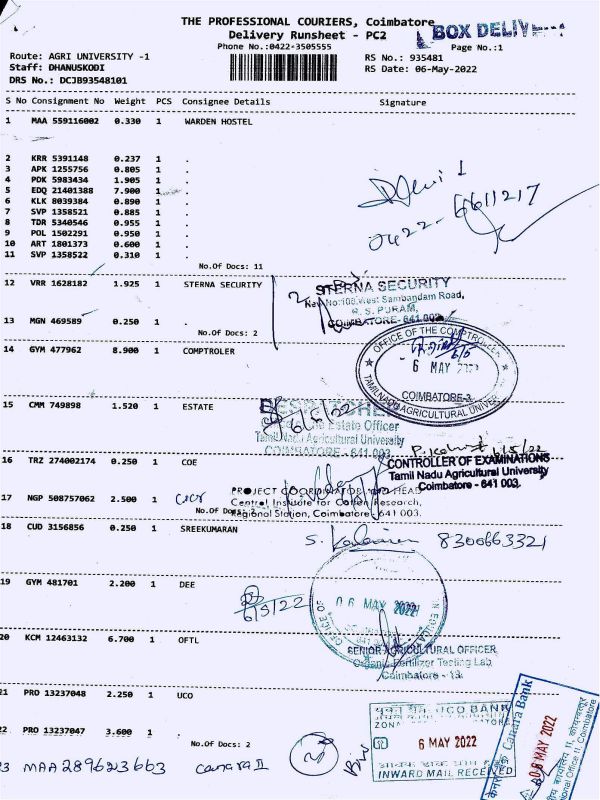 THE PROFESSIONAL COURIERS, Coimbatore
BOX DELIV
Delivery Runsheet - PC2
Phone No.:0422-3505555
Page No.:1
Route: AGRI UNIVERSITY -1
Staff: DHANUSKODI
DRS No.: DCJB93548101
RS No.: 935481
RS Date: 06-May-2022
S No Consignment No Weight PCS Consignee Details Signature
1 MAA 559116002 0.330 1 WARDEN HOSTEL
2 KRR 5391148 0.237 1 .
3 APK 1255756 0.805 1 .
4 PDK 5983434 1.905 1 .
5 EDQ 21401388 7.900 1 .
6 KLK 8039384 0.890 1 .
7 SVP 1358521 0.885 1 .
8 TDR 5340546 0.955 1 .
9 POL 1502291 0.950 1 .
10 ART 1801373 0.600 1 .
11 SVP 1358522 0.310 1 .
No.Of Docs: 11
0422-6611217
12 VRR 1628182 1.925 1 STERNA SECURITY
STERNA SECURITY
New No:108,West Sambandam Road,
R. S. PURAM,
COIMBATORE- 641.002
13 MGN 469589 0.250 1 .
No.Of Docs: 2
14 GYM 477962 8.900 1 COMPTROLER
OFFICE OF THE COMPTROLLER
6 MAY
COIMBATORE-3
TAMILNADU AGRICULTURAL UNIVER
15 CMM 749898 1.520 1 ESTATE
6/5/22
Estate Officer
Tamil Nadu Agricultural University
COIMBATORE - 641 003.
16 TRZ 274002174 0.250 1 COE
CONTROLLER OF EXAMINATIONS
Tamil Nadu Agricultural University
Coimbatore - 641 003.
17 NGP 508757062 2.500 1 CICR
PROJECT COORDINATOR AND HEAD
Central Institute for Cotton Research,
Regional Station, Coimbatore- 641 003.
No.Of Docs:
18 CUD 3156856 0.250 1 SREEKUMARAN
8300663321
19 GYM 481701 2.200 1 DEE
6/5/22
06 MAY 2022
20 KCM 12463132 6.700 1 OFTL
SENIOR AGRICULTURAL OFFICER
Organic Fertilizer Testing Lab
Coimbatore - 13.
21 PRO 13237048 2.250 1 UCO
22 PRO 13237047 3.600 1 .
No.Of Docs: 2
UCO BANK
6 MAY 2022
INWARD MAIL RECEIVED
Canara Bank
06 MAY 2022
23 MAA289623663 canara II